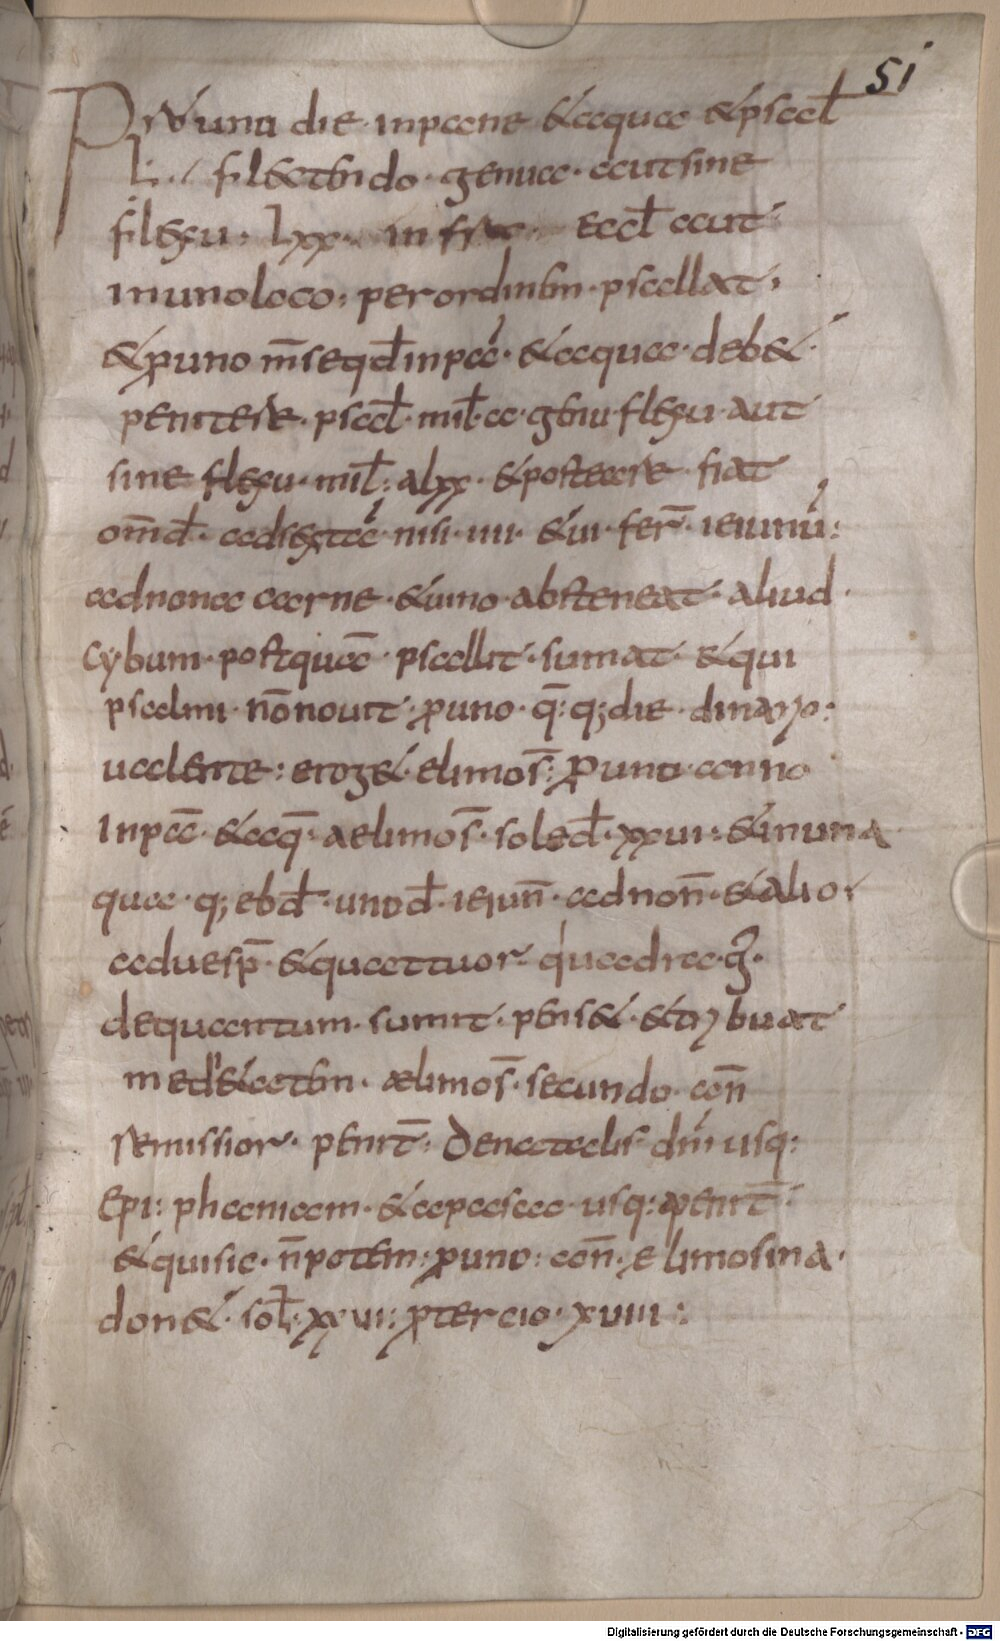 51
Pro una die in pane & aqua & psal̄
L· flectendo genua aut sine
flexu· Lxx· in eccl̄ aut
in uno loco· per ordinem psallat·
& ꝓ uno m̄se qd̄ in pā· & aqua· deb&·
penitere· psal̄· mil̄· cc· genu flexu aut
sine flexu mil̄· dlxx· & postea re fiat
om̄d̄· ad sextā· nisi· iiii· & ui· fer̄· ieiuniū:
ad nona carne· & uino· absteneat· aliud·
cybum· postquā psallit· sumat· & qui
psalmi nōnouit· ꝓ uno· q̄: q; die· dinario:
ualente: erog& elimos̄: ꝓ uno anno
In pā· & aq̄: aelimos̄· soled̄· xxui: & in una
qua· q; ebd̄· uno d̄· ieiun̄· ad non̄· & alio·
ad uesp̄· & quattuor quadra·g̃·
de quantum· sumit· pens& & tribuat
medi&atem· ælimos̄· secundo· an̄
remissior· penit̄: De natalis dn̄i usq:
Epi: phaniam· & a pasca· usq: penit̄·
& qui sic· n̄ potem: ꝓ uno: an̄· elimosina·
don& sol̄· xxui: ꝓ tercio· xuiii:
Digitalisierung gefördert durch die Deutsche Forschungsgemeinschaft - DFG